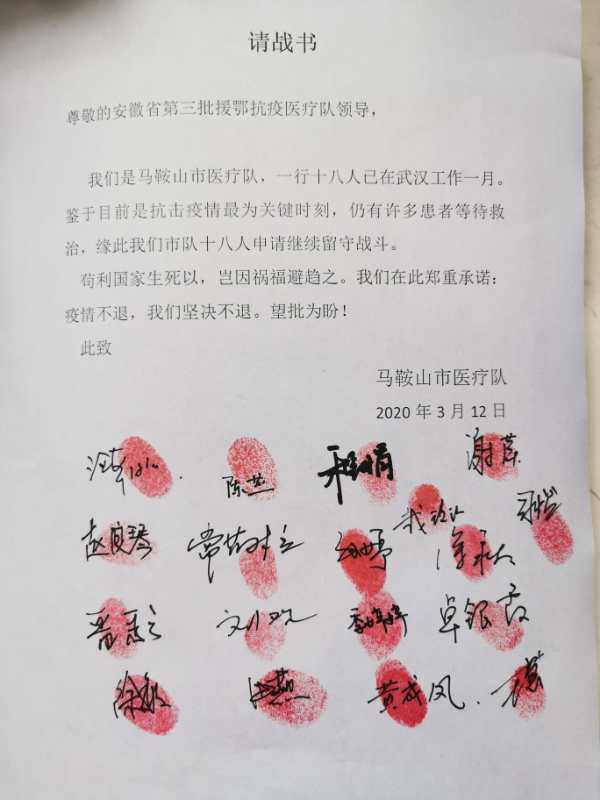 请战书
尊敬的安徽省第三批援鄂抗疫医疗队领导，
我们是马鞍山市医疗队，一行十八人已在武汉工作一月。
鉴于目前是抗击疫情最为关键时刻，仍有许多患者等待救
治，缘此我们市队十八人申请继续留守战斗。
苟利国家生死以，岂因祸福避趋之。我们在此郑重承诺：
疫情不退，我们坚决不退。望批为盼！
此致
马鞍山市医疗队
2020 年 3 月 12 日
陈燕 谢萍
赵良琴
刘小双 李婷婷 卓银霞
徐敏 汪燕 黄成凤